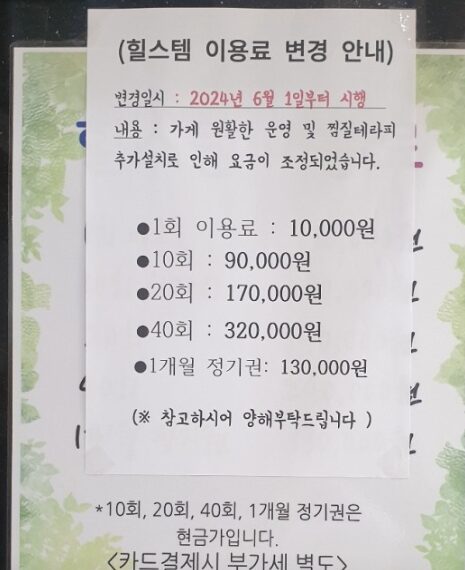 (힐스템 이용료 변경 안내)
변경일시 : 2024년 6월 1일부터 시행
내용 : 가게 원활한 운영 및 찜질테라피
추가설치로 인해 요금이 조정되었습니다.
●1회 이용료 : 10,000원
●10회 : 90,000원
●20회 : 170,000원
●40회 : 320,000원
●1개월 정기권: 130,000원
(※ 참고하시어 양해부탁드립니다 )
*10회, 20회, 40회, 1개월 정기권은
현금가입니다.
<카드결제시 부가세 별도>